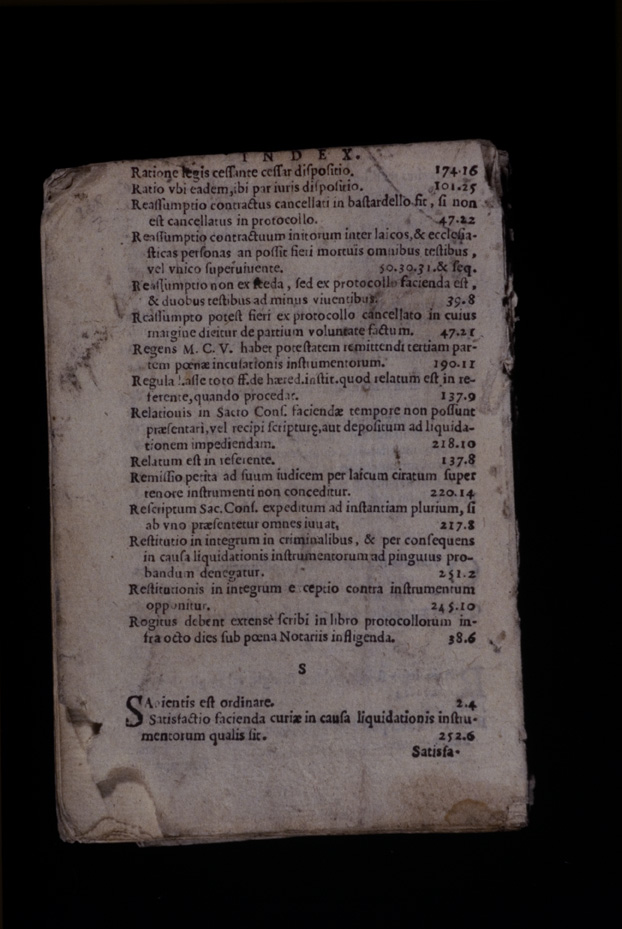 INDEX.
Ratione legis cessante cessat dispositio. 174.16
Ratio vbi eadem, ibi par iuris dispositio. 101.25
Reassumptio contractus cancellati in bastardello fit, si non
est cancellatus in protocollo. 47.22
Reassumptio contractuum initorum inter laicos, & ecclesia-
sticas personas an possit fieri mortuis omnibus testibus,
vel vnico superuiuente. 50.30.31.& seq.
Reassumptio non ex sceda, sed ex protocollo facienda est,
& duobus testibus ad minus viuentibus. 39.8
Reassumptio potest fieri ex protocollo cancellato in cuius
margine dicitur de partium voluntate factum. 47.21
Regens M. C. V. habet potestatem remittendi tertiam par-
tem pœnæ incusationis instrumentorum. 190.11
Regula l.asse toto ff.de hæred.instit.quod relatum est in re-
ferente, quando procedat. 137.9
Relationis in Sacro Cons. faciendæ tempore non possunt
præsentari, vel recipi scripturę, aut depositum ad liquida-
tionem impediendam. 218.10
Relatum est in referente. 137.8
Remissio petita ad suum iudicem per laicum citatum super
tenore instrumenti non conceditur. 220.14
Rescriptum Sac. Cons. expeditum ad instantiam plurium, si
ab vno præsentetur omnes iuuat, 217.8
Restitutio in integrum in criminalibus, & per consequens
in causa liquidationis instrumentorum ad pinguius pro-
bandum denegatur. 251.2
Restitutionis in integrum e ceptio contra instrumentum
opponitur. 245.10
Rogitus debent extensè scribi in libro protocollorum in-
fra octo dies sub pœna Notariis infligenda. 38.6
S
SApientis est ordinare. 2.4
Satisfactio facienda curiæ in causa liquidationis instru-
mentorum qualis sit. 252.6
Satisfa-